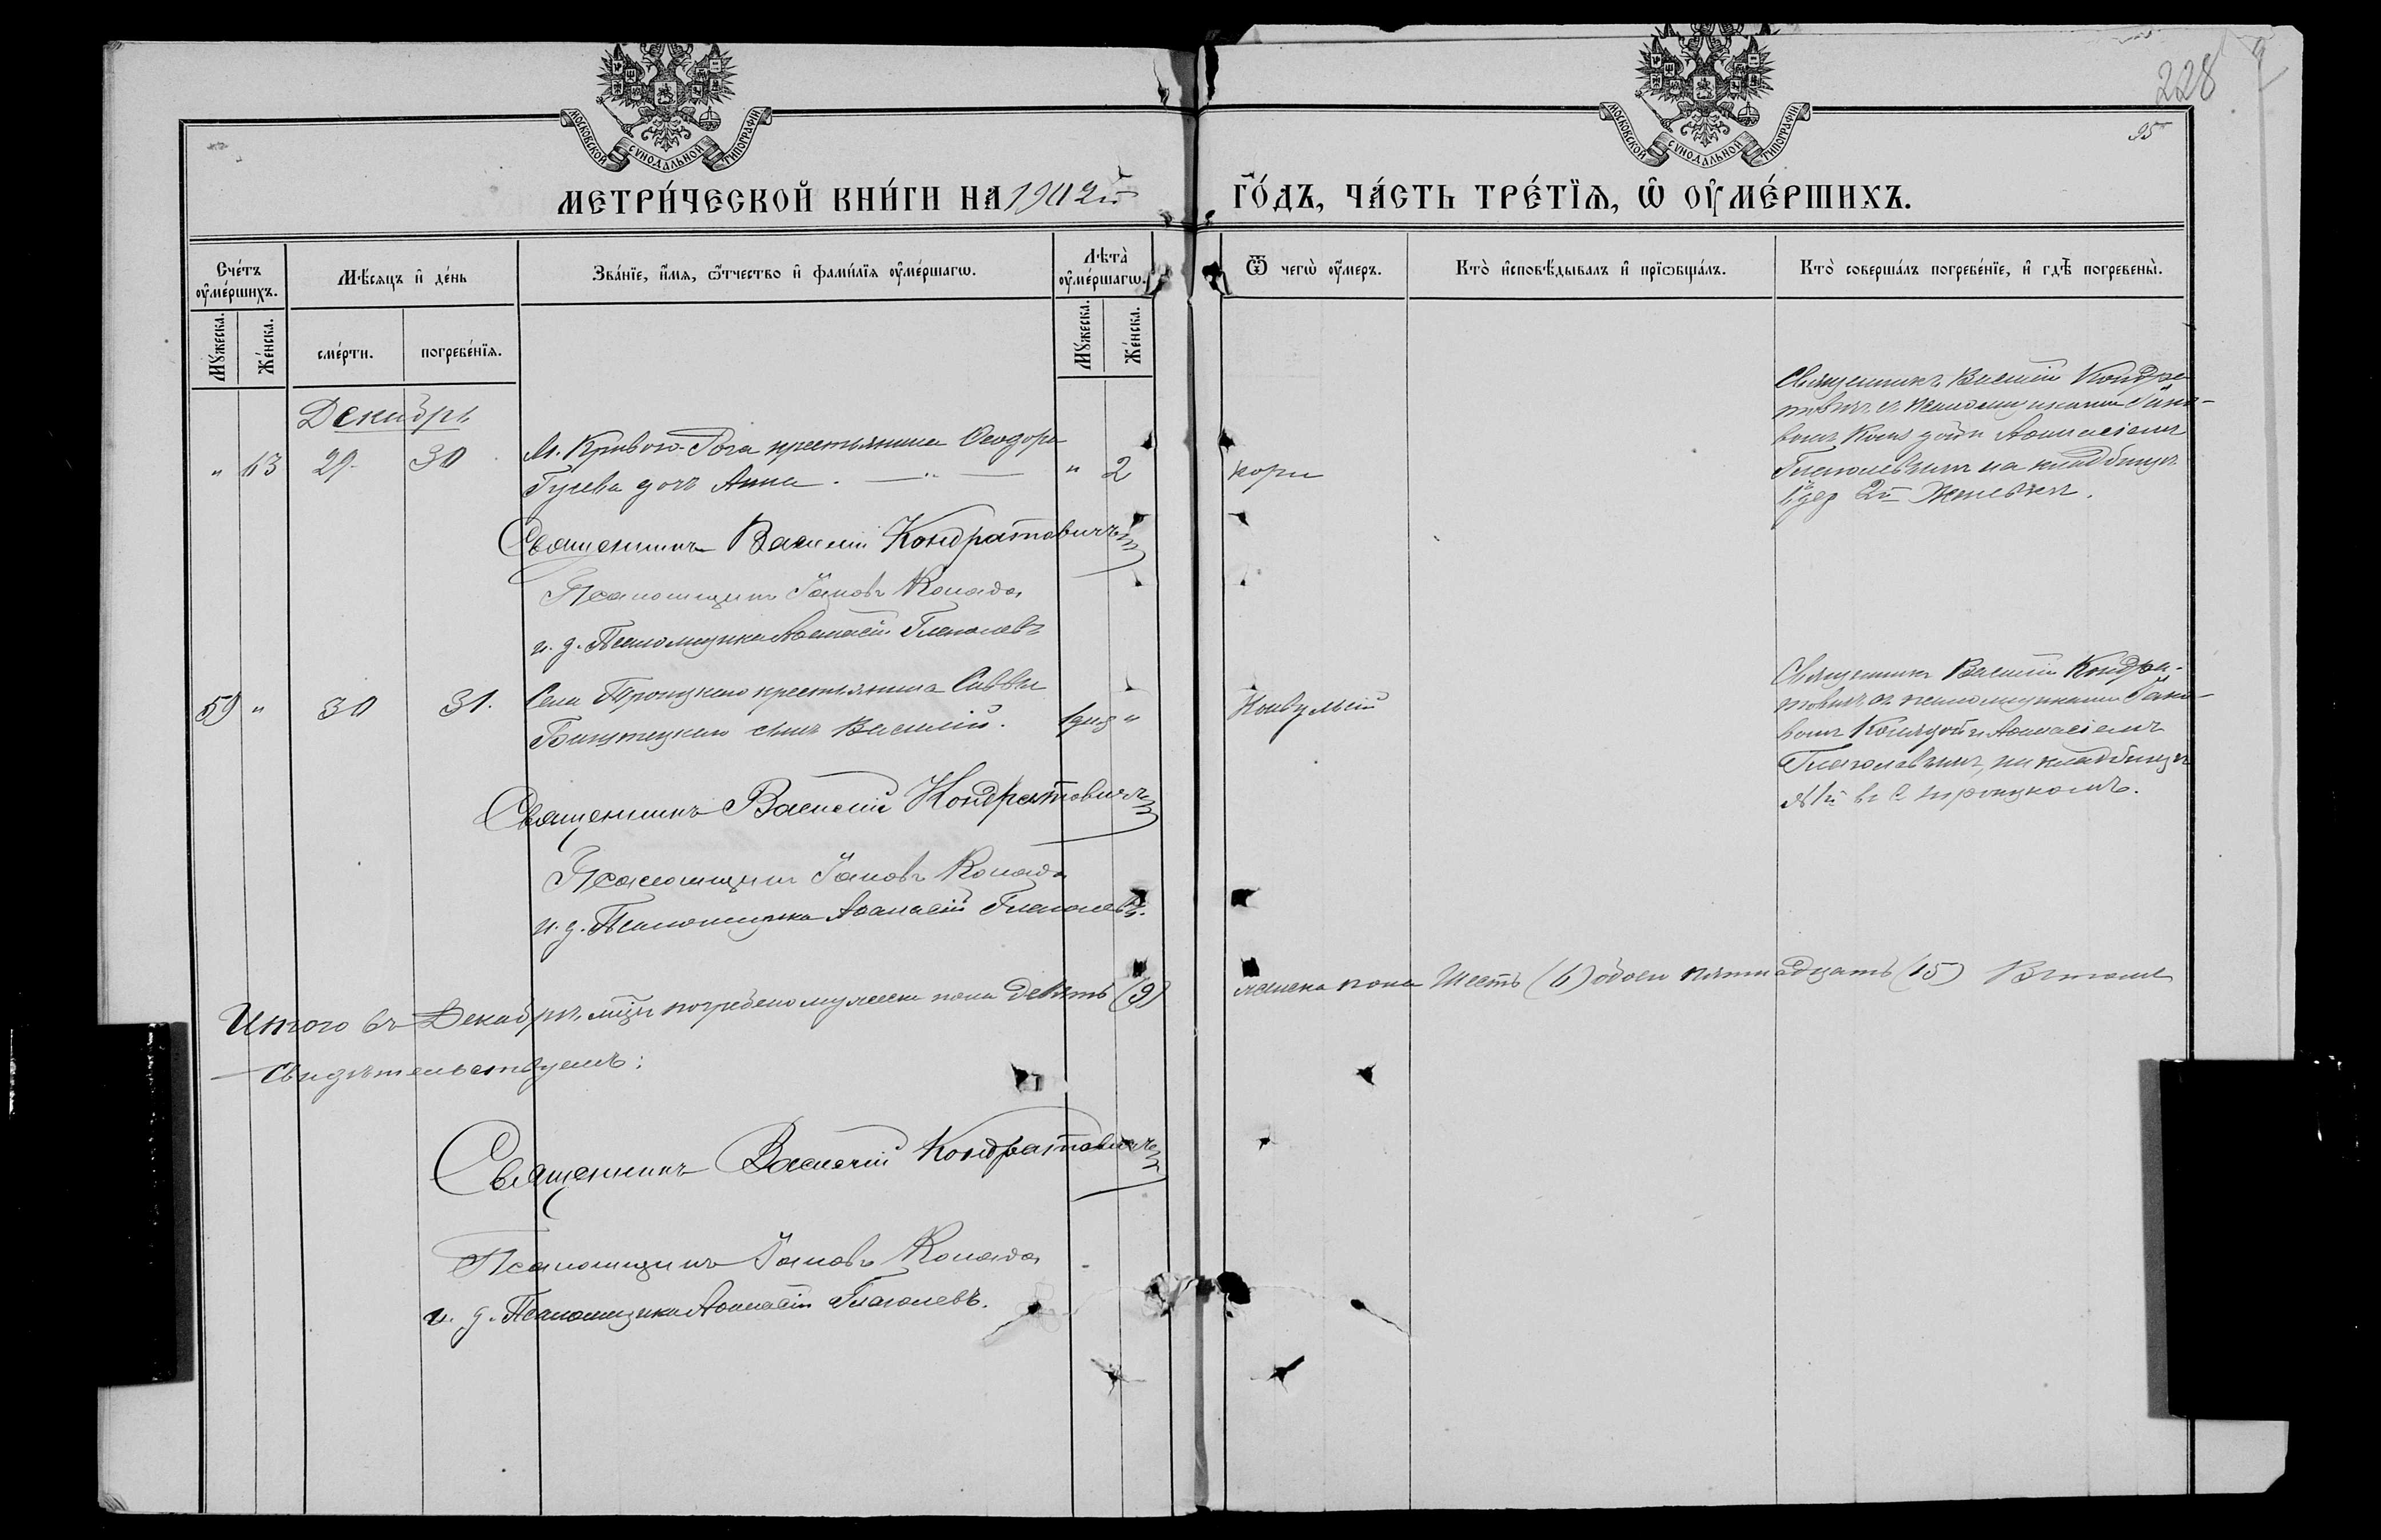 228
95
МОСКОВСКОЙ СѴНОДАЛЬНОЙ ТИПОГРАФІИ
МОСКОВСКОЙ СѴНОДАЛЬНОЙ ТИПОГРАФІИ
МЕТРИ́ЧЕСКОЙ КНИ́ГИ НА 1902й
ГО́ДЪ, ЧА́СТЬ ТРЕ́ТЇѦ, Ѡ ОУ҆МЕ́РШИХЪ.
Сче́тъ оу҆ме́ршихъ.
Мѣ́сѧцъ и҆ де́нь
Зва́нїе, и҆́мѧ, ѻ҆́тчество и҆ фами́лїѧ оу҆ме́ршагѡ.
Лѣта̀ оу҆ме́ршагѡ.
Ѿ чегѡ̀ оу҆́меръ.
Кто̀ и҆сповѣ́дывалъ и҆ прїѡбща́лъ.
Кто̀ соверша́лъ погребе́нїе, и҆ гдѣ̀ погребены̀.
Мꙋ́жеска.
Же́нска.
сме́рти.
погребе́нїѧ.
Мꙋ́жеска.
Же́нска.
Декабрь
" 63 29. 30
М. Кривого-Рога крестьянина Ѳеодора
Гусева дочь Анна. — " —
" 2
кори
Священникъ Василій Кондра-
товичъ съ псаломщиками Іако-
вомъ Колядой и Аѳанасіемъ
Глаголевымъ на кладбищѣ
Священникъ Василій Кондратовичъ
Псаломщикъ Іаковъ Коляда
и. д. Псаломщика Аѳанасій Глаголевъ
59 " 30 31.
Села Троицкаго крестьянина Саввы
сынъ Василій.
1дня "
Конвульсій
Священникъ Василій Кондра-
товичъ съ псаломщиками Іако-
вомъ Колядой и Аѳанасіемъ
Глаголевымъ, на кладбищѣ
№ 1й въ с. Троицкомъ.
Священникъ Василій Кондратовичъ
Псаломщикъ Іаковъ Коляда
и. д. Псаломщика Аѳанасій Глаголевъ.
Итого въ Декабрѣ мцѣ погребено мужеска пола девять (9)
женска пола шесть (6) обоего пятнадцать (15) Въ томъ
свидѣтельствуемъ:
Священникъ Василій Кондратовичъ
Псаломщикъ Іаковъ Коляда
и. д. Псаломщика Аѳанасій Глаголевъ.